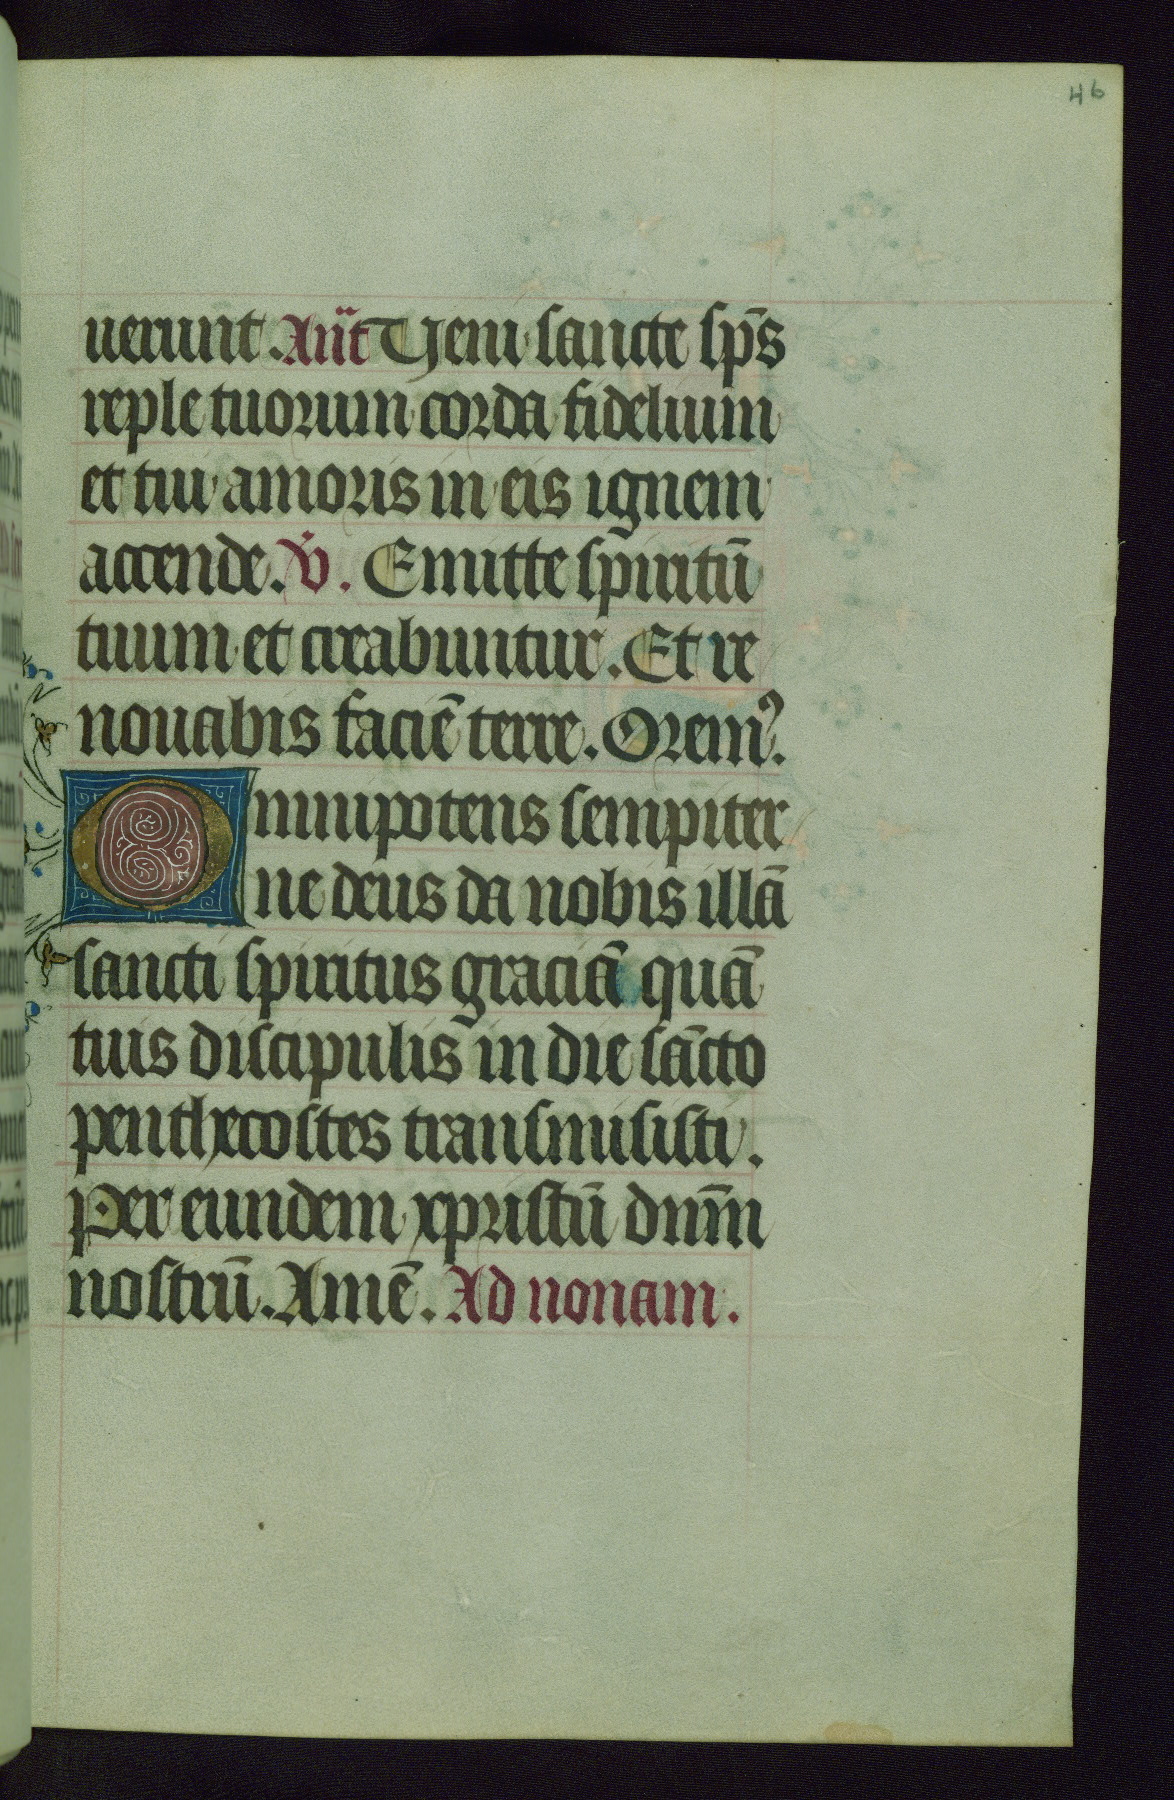 46
uerunt. Añt Veni sancte sp̄s
reple tuorum corda fidelium
et tui amoris in eis ignem
accende. V̇. Emitte spiritū
tuum et creabuntur. Et re
nouabis faciē terre. Oremꝰ.
Omnipotens sempiter
ne deus da nobis illā
sancti spiritus graciā quā
tuis discipulis in die sācto
penthecostes transmisisti.
Per eundem xpristū dnm̄
nostrū. Amē. Ad nonam.